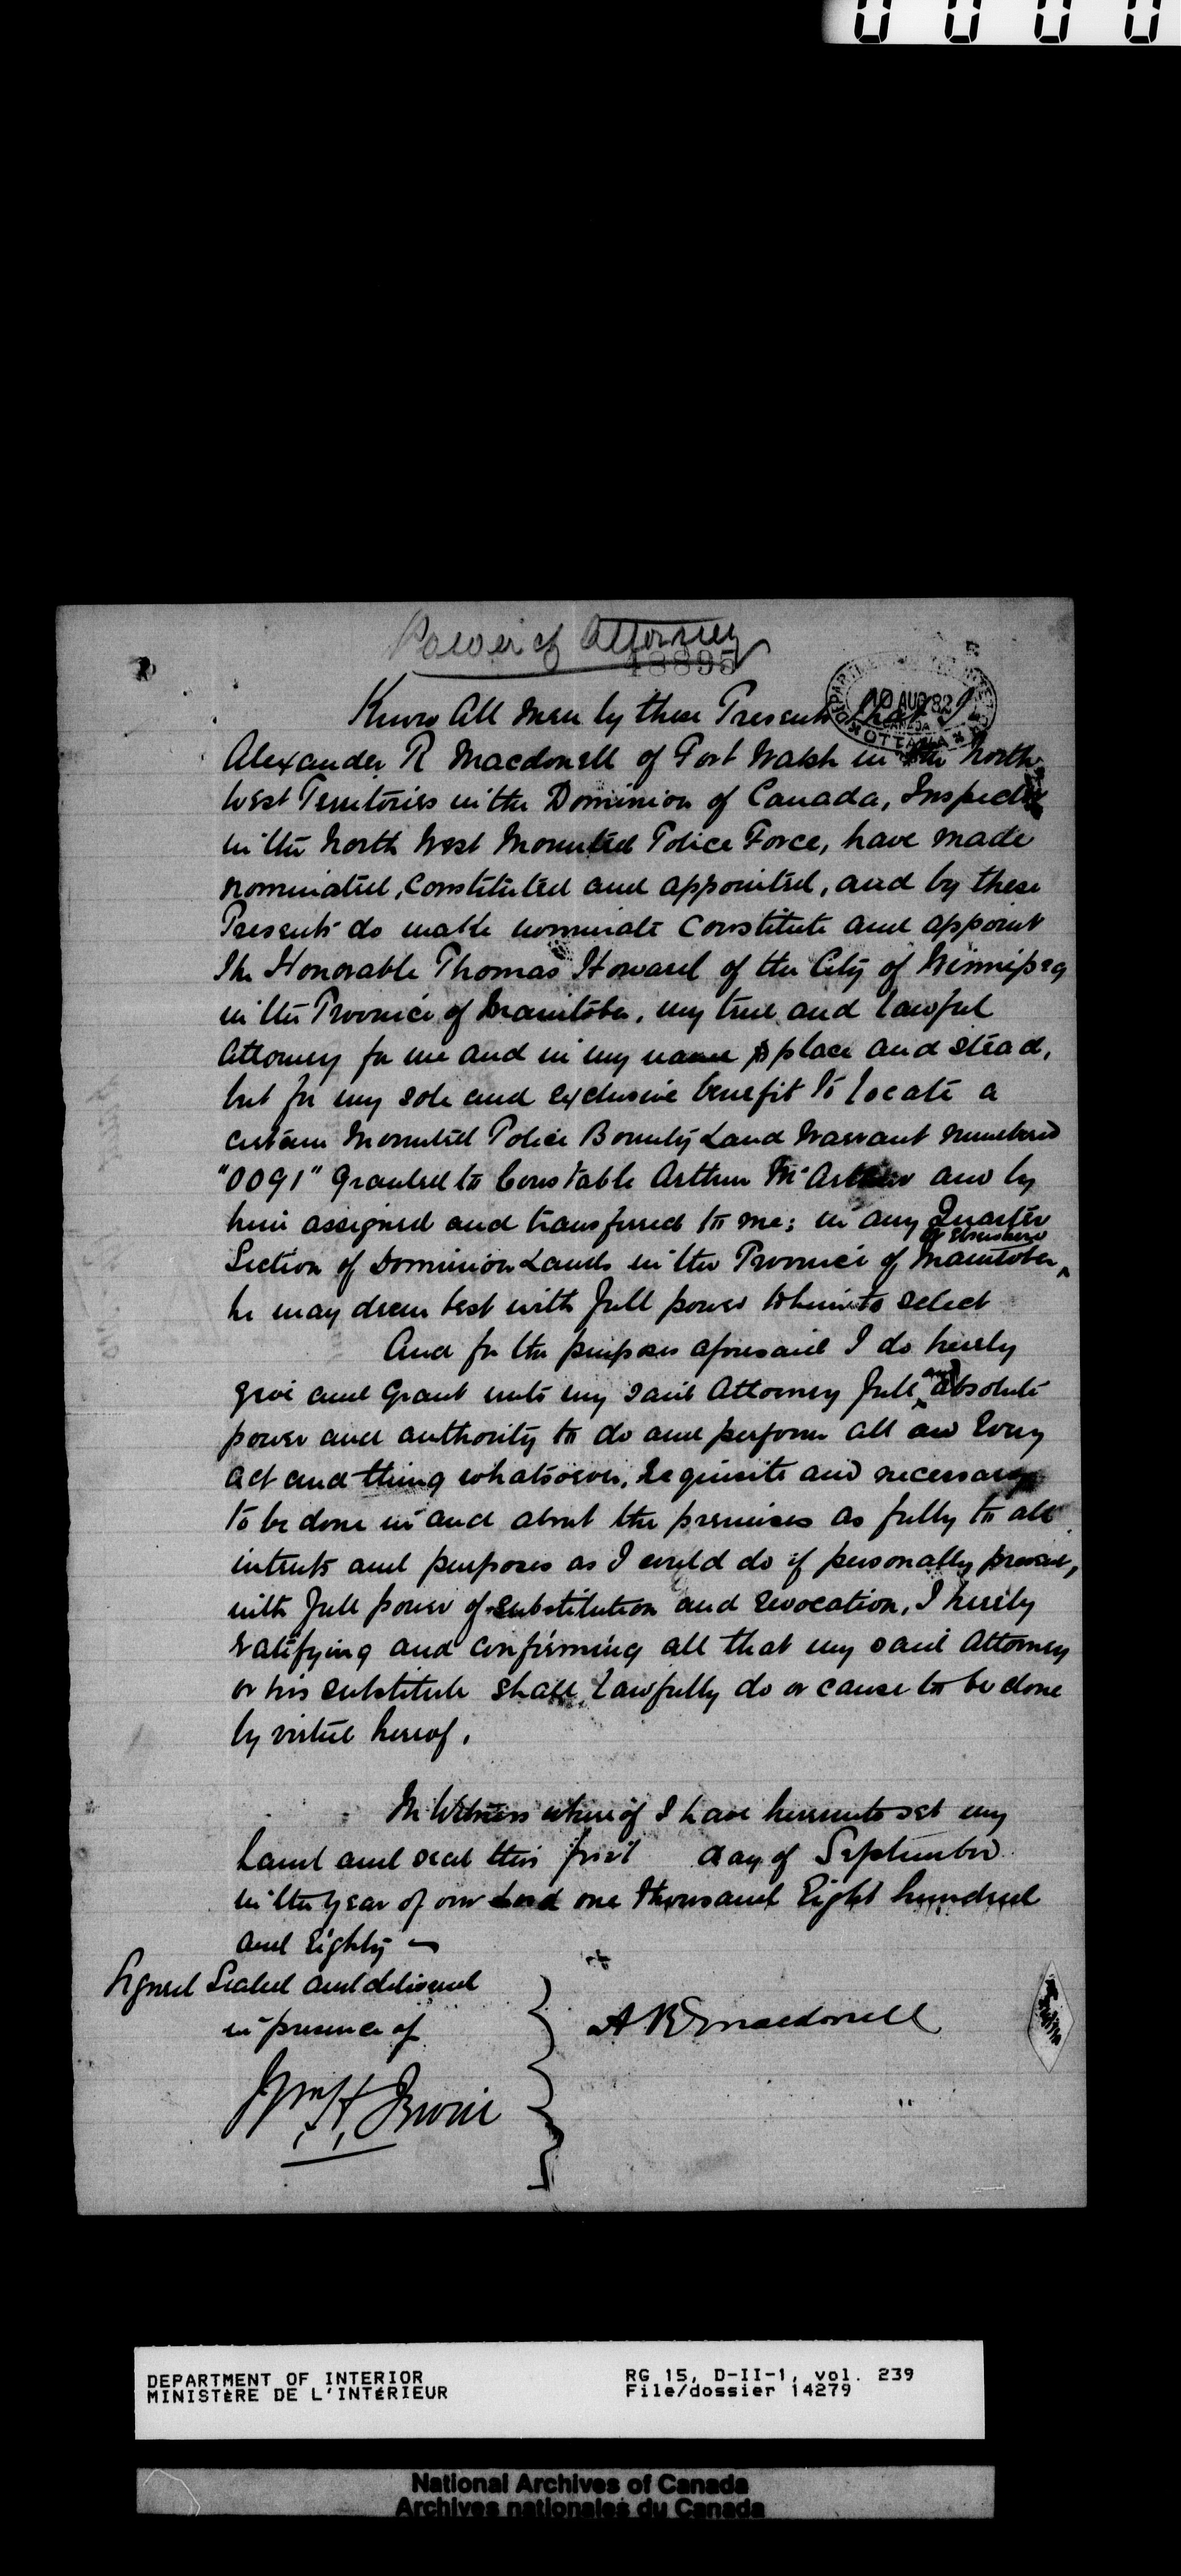 0 0 0 0
Power of Attorney
48895
10 AUG 82
CANADA
OTTAWA
Know All Men by these Presents that I
Alexander R Macdonell of Fort Walsh in the North
West Territories in the Dominion of Canada, Inspector
in the North West Mounted Police Force, have made
nominated, constituted and appointed, and by these
Presents do make nominate constitute and appoint
The Honorable Thomas Howard of the City of Winnipeg
in the Province of Manitoba, my true and lawful
Attorney for me and in my name place and stead,
but for my sole and exclusive benefit to locate a
certain Mounted Police Bounty Land Warrant numbered
"0091" granted to Constable Arthur McArthur and by
him assigned and transferred to me; in any Quarter
or elsewhere
Section of Dominion Lands in the Province of Manitoba
he may deem best with full power to him to select
And for the purposes aforesaid I do hereby
and
give and Grant unto my said Attorney full absolute
power and authority to do and perform all and Every
act and thing whatsoever, requisite and necessary
to be done in and about the premises as fully to all
intents and purposes as I could do if personally present,
with full power of substitution and revocation, I hereby
ratifying and confirming all that my said Attorney
or his substitute shall lawfully do or cause to be done
by virtue hereof.
In Witness whereof I have hereunto set my
hand and seal this first day of September
in the year of our Lord one thousand Eight hundred
and Eighty
Signed Sealed and delivered
in presence of
A R Macdonell
Wm H. Irvine
DEPARTMENT OF INTERIOR
MINISTÈRE DE L'INTÉRIEUR
RG 15, D-II-1, vol. 239
File/dossier 14279
National Archives of Canada
Archives nationales du Canada